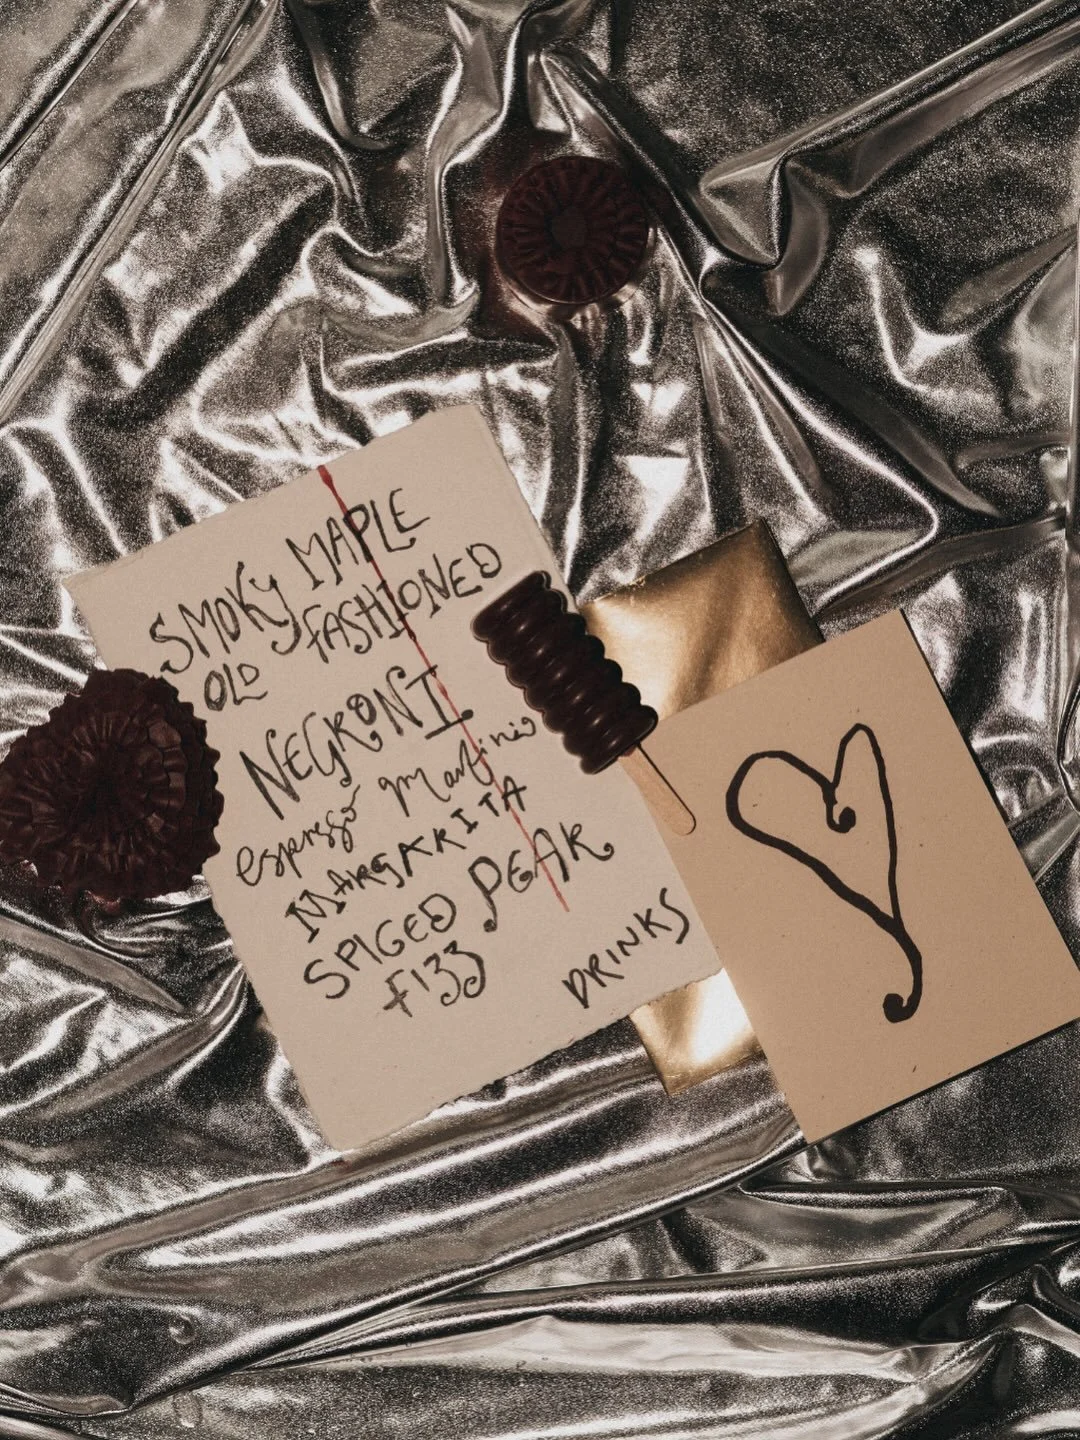 SMOKY MAPLE
OLD FASHIONED
NEGRONI
espresso martini
MARGARITA
SPICED PEAR
FIZZ
DRINKS